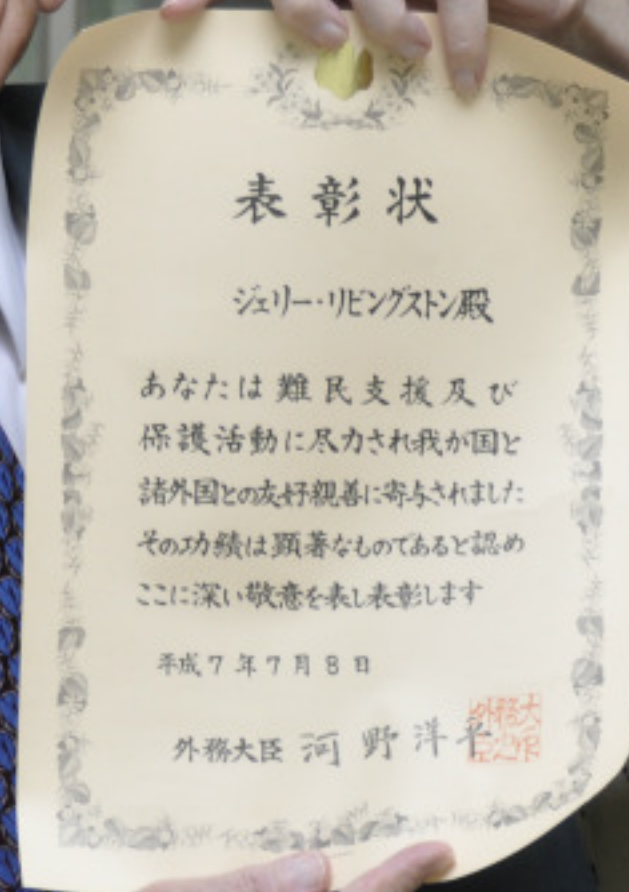 表彰状
ジェリー・リビングストン殿
あなたは難民支援及び
保護活動に尽力され我が国と
諸外国との友好親善に寄与されました
その功績は顕著なものであると認め
ここに深い敬意を表し表彰します
平成7年7月8日
外務大臣 河野洋平
外務大臣之印